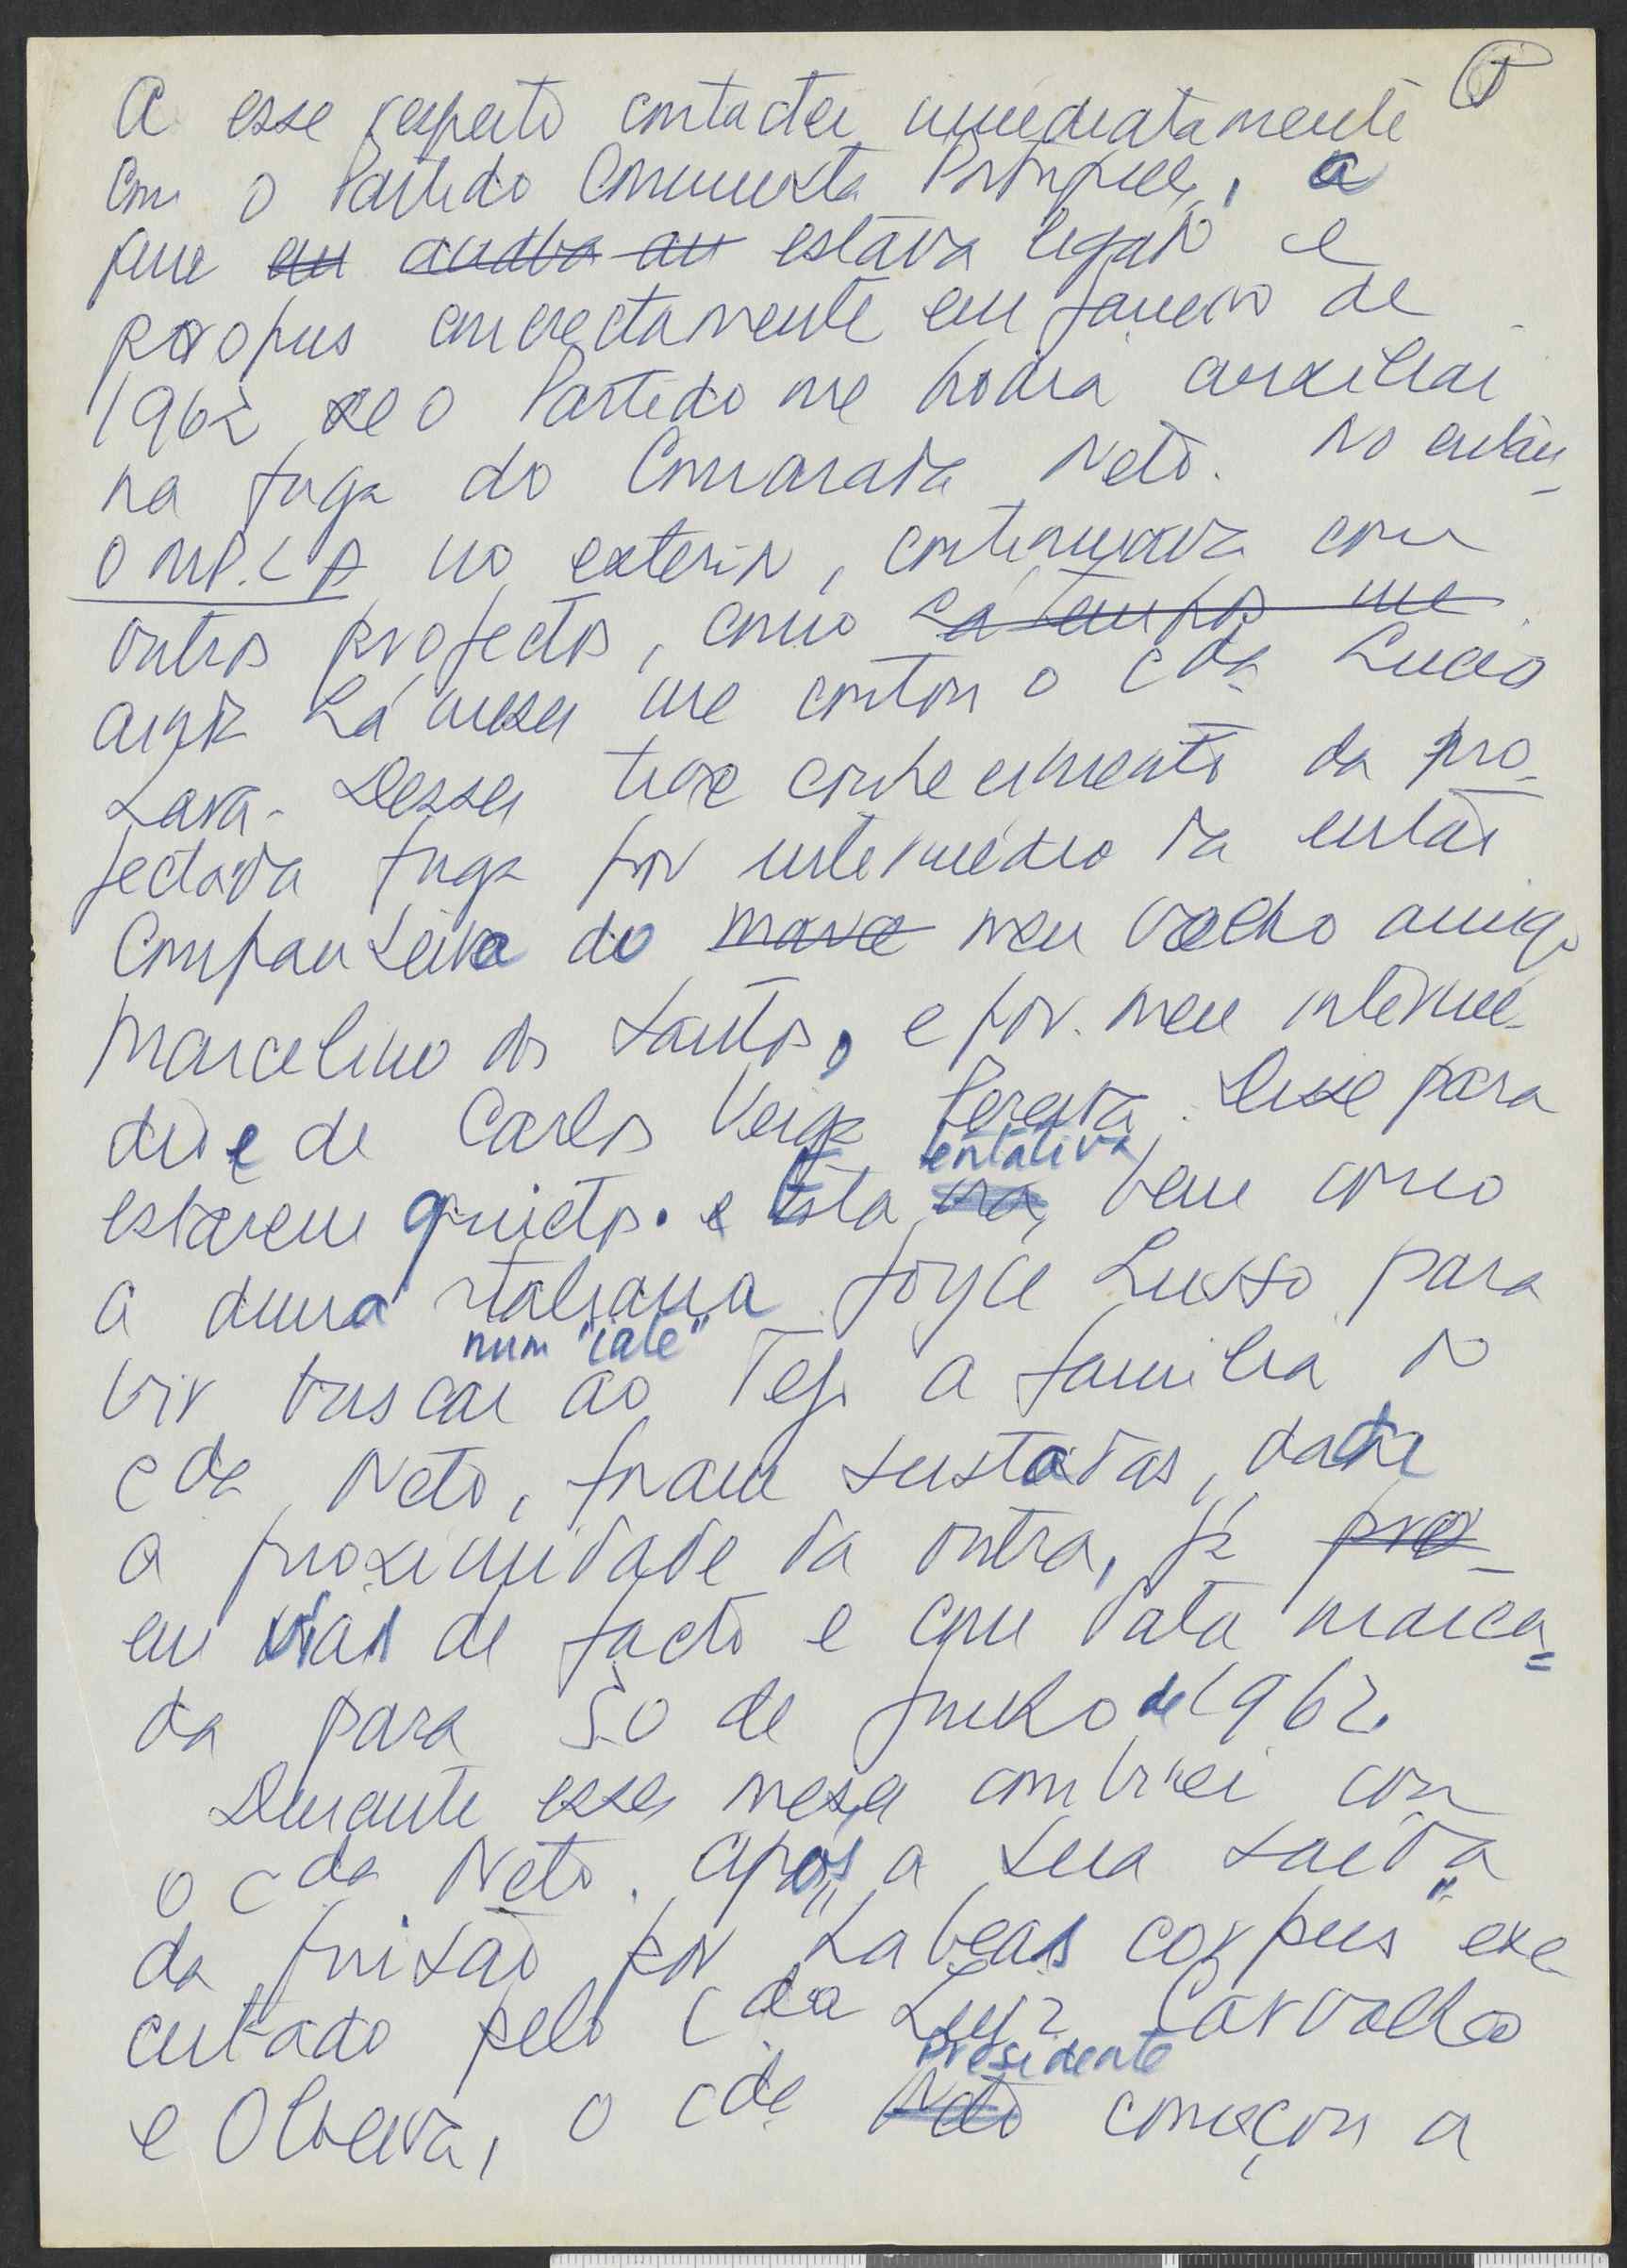 A esse respeito contactei imediatamente
com o Partido Comunista Português, a
que eu andava au estava ligado e
propus concretamente em Janeiro de
1962 se o Partido me podia auxiliar
na fuga do Camarada Neto. No entan-
o M.P.L.A no exterior, continuava com
outros projectos, como há tempos me
aqui há meses me contou o cda Lucio
Lara. Desses tive conhecimento da pro-
jectada fuga por intermédio da então
Companheira do meu velho amigo
Marcelino dos Santos, e por meu intermé-
dio e de Carlos Veiga Pereira. Disse para
entativa
estarem quietos. Esta bem como
a duma italiana Joyce Lusso para
num "iate"
vir buscar ao Tejo a familia do
cda Neto, foram sustadas, dada
a proximidade da outra, já prox
em vias de facto e com data marca-
da para 30 de Junho de 1962.
Durante esses meses combinei com
o cda Neto. Após a sua saída
da prisão por "habeas corpus" exe
cutado pelo cda Luiz Carvalho
presidente
e Oliveira, o cda Neto começou a